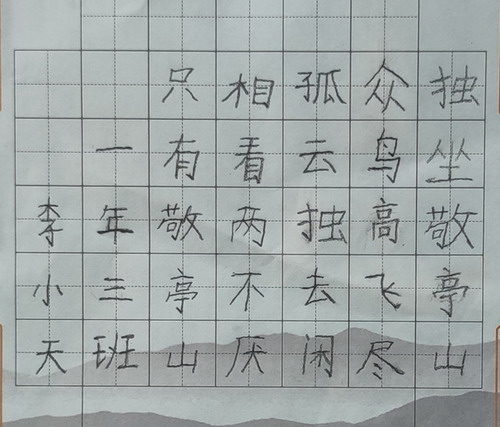 独坐敬亭山
众鸟高飞尽
孤云独去闲
相看两不厌
只有敬亭山
一年三班
李小天